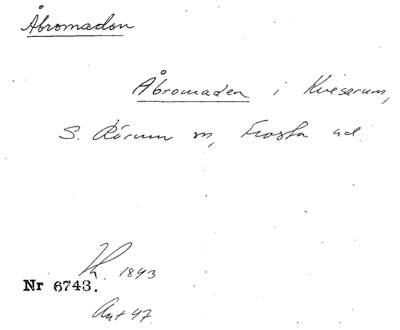 Åbromadon
Åbromaden i Kvesarum,
S. Rörum sn, Frosta hd.
1843
Nr 6743.
Ant 47.